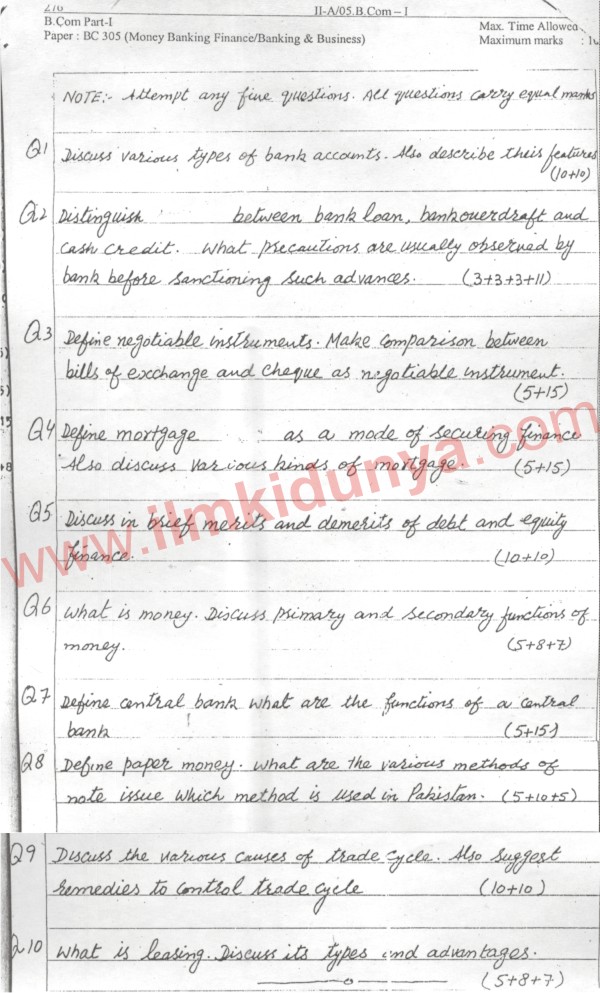 276
II-A/05.B.Com – I
B.Com Part-I
Paper : BC 305 (Money Banking Finance/Banking & Business)
Max. Time Allowed
Maximum marks : 1
NOTE:- Attempt any five questions. All questions carry equal marks
Q1 Discuss various types of bank accounts. Also describe their features
(10+10)
Q2 Distinguish between bank loan, bank overdraft and
cash credit. What precautions are usually observed by
bank before sanctioning such advances. (3+3+3+11)
Q3 Define negotiable instruments. Make comparison between
bills of exchange and cheque as negotiable instrument.
(5+15)
Q4 Define mortgage as a mode of securing finance
Also discuss various kinds of mortgage. (5+15)
Q5 Discuss in brief merits and demerits of debt and equity
finance. (10+10)
Q6 What is money. Discuss primary and secondary functions of
money. (5+8+7)
Q7 Define central bank what are the functions of a central
bank (5+15)
Q8 Define paper money. What are the various methods of
note issue which method is used in Pakistan. (5+10+5)
Q9 Discuss the various causes of trade cycle. Also suggest
remedies to control trade cycle (10+10)
Q10 What is leasing. Discuss its types and advantages.
(5+8+7)
www.ilmkidunya.com